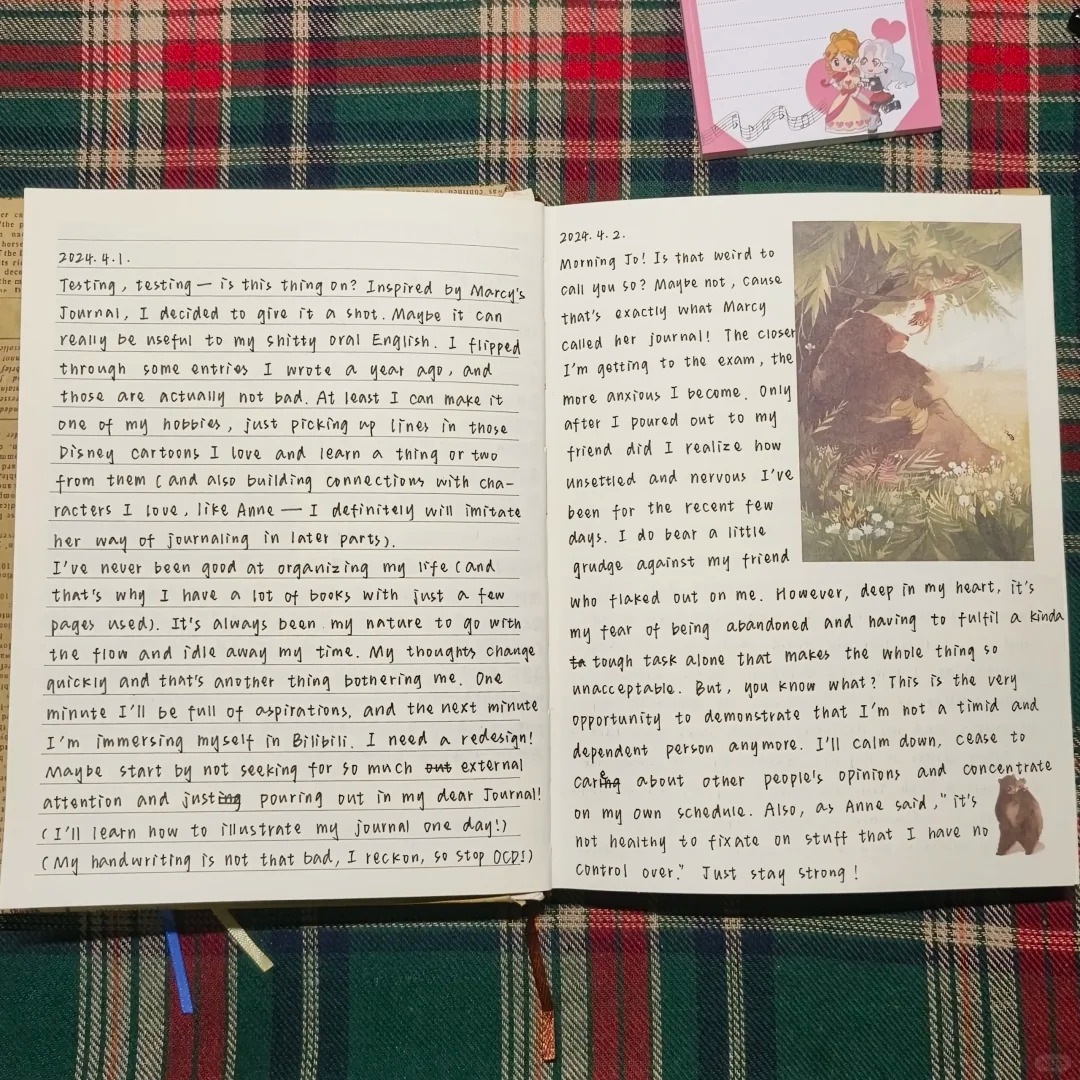 2024.4.1.
Testing, testing — is this thing on? Inspired by Marcy's
Journal, I decided to give it a shot. Maybe it can
really be useful to my shitty oral English. I flipped
through some entries I wrote a year ago, and
those are actually not bad. At least I can make it
one of my hobbies, just picking up lines in those
Disney cartoons I love and learn a thing or two
from them (and also building connections with cha-
racters I love, like Anne — I definitely will imitate
her way of journaling in later parts).
I've never been good at organizing my life (and
that's why I have a lot of books with just a few
pages used). It's always been my nature to go with
the flow and idle away my time. My thoughts change
quickly and that's another thing bothering me. One
minute I'll be full of aspirations, and the next minute
I'm immersing myself in Bilibili. I need a redesign!
Maybe start by not seeking for so much out external
attention and justing pouring out in my dear Journal!
(I'll learn how to illustrate my journal one day!)
(My handwriting is not that bad, I reckon, so stop OCD!)
2024.4.2.
Morning Jo! Is that weird to
call you so? Maybe not, cause
that's exactly what Marcy
called her journal! The closer
I'm getting to the exam, the
more anxious I become. Only
after I poured out to my
friend did I realize how
unsettled and nervous I've
been for the recent few
days. I do bear a little
grudge against my friend
who flaked out on me. However, deep in my heart, it's
my fear of being abandoned and having to fulfil a kinda
ta tough task alone that makes the whole thing so
unacceptable. But, you know what? This is the very
opportunity to demonstrate that I'm not a timid and
dependent person anymore. I'll calm down, cease to
care about other people's opinions and concentrate
on my own schedule. Also, as Anne said, "it's
not healthy to fixate on stuff that I have no
control over." Just stay strong!